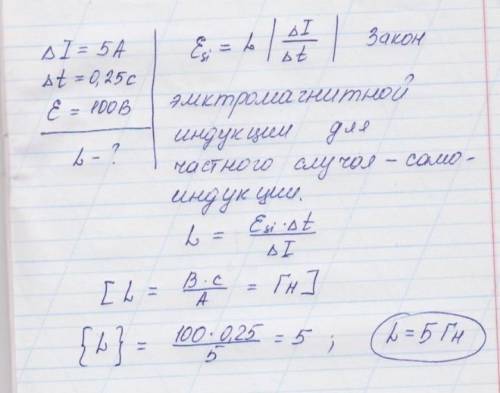 ΔI = 5A
Δt = 0,25с
Ɛ = 100В
L - ?
Ɛsi = L |ΔI/Δt| Закон
электромагнитной
индукции для
частного случая - само-
индукции.
L = Ɛsi · Δt / ΔI
[L = В·с/А = Гн]
{L} = 100·0,25/5 = 5 ; L = 5 Гн